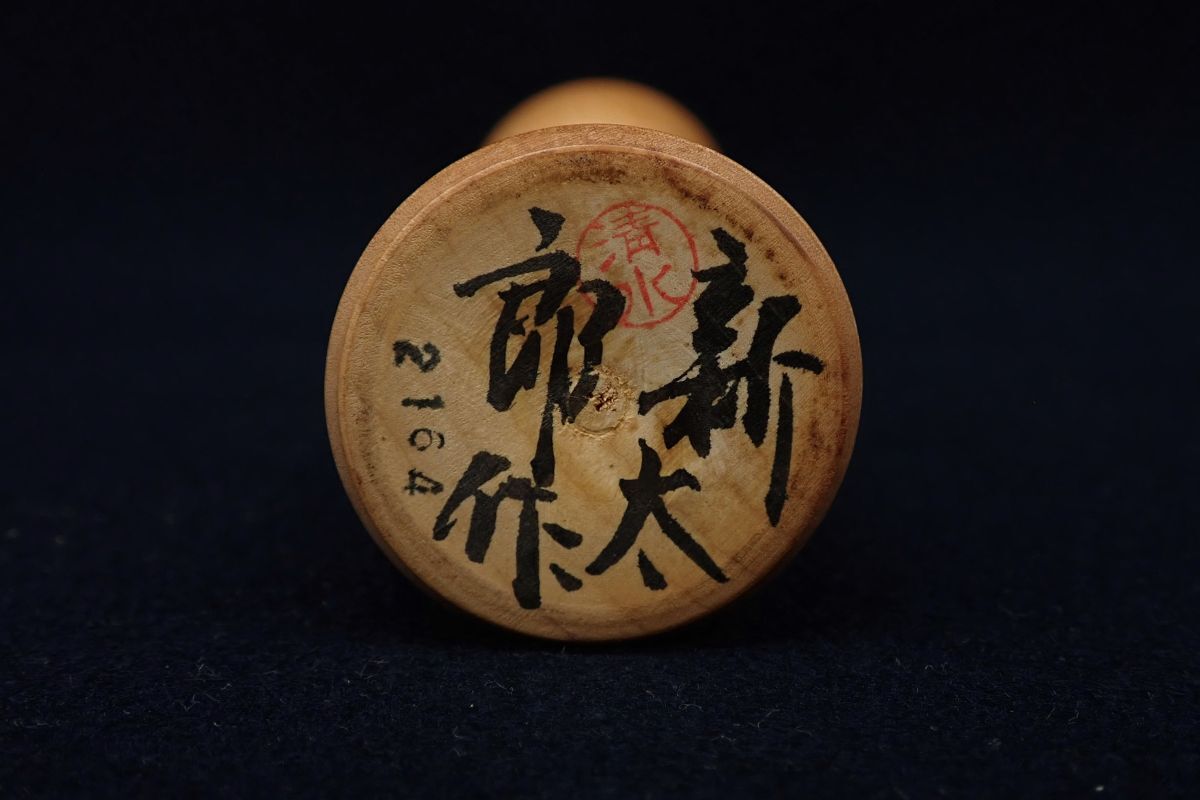 新太
郎作
清水
2164